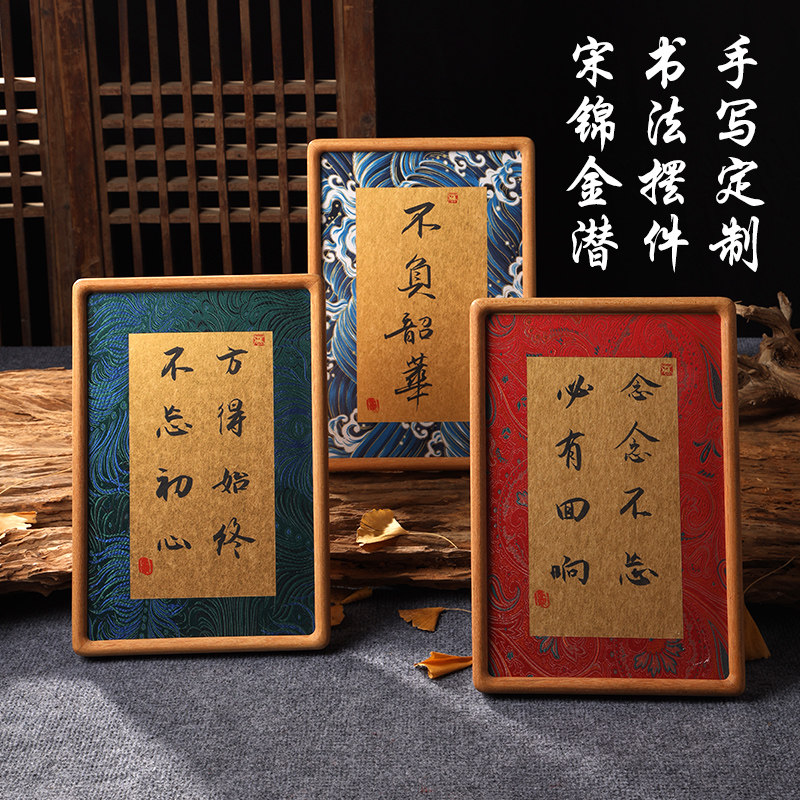 手写定制
书法摆件
宋锦金潜
不負韶華
方得始终
不忘初心
念念不忘
必有回响